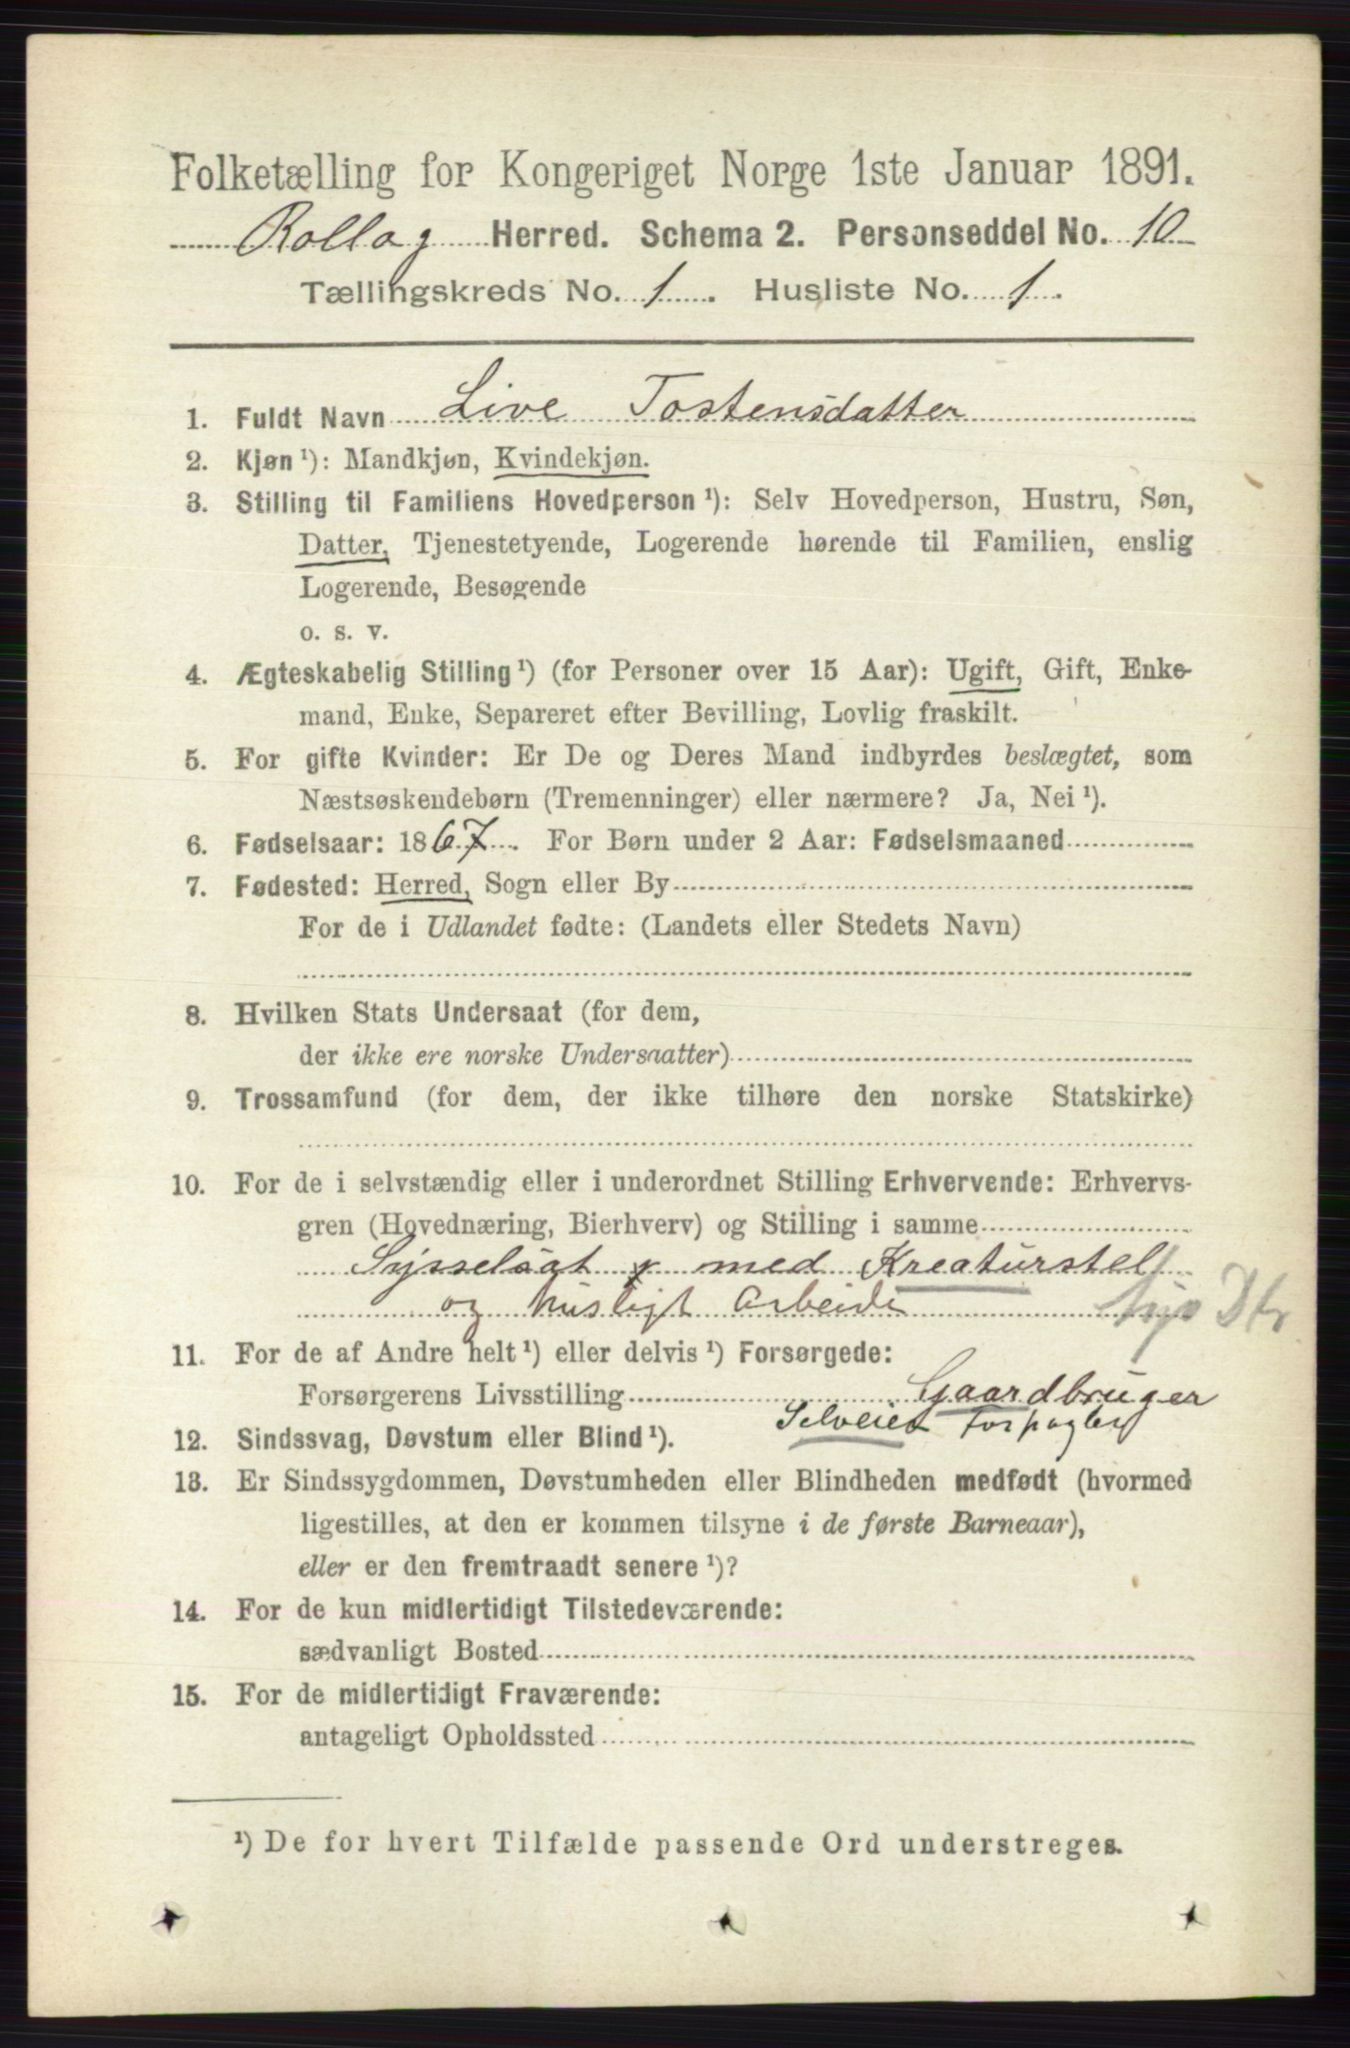 Folketælling for Kongeriget Norge 1ste Januar 1891.
Rollag Herred. Schema 2. Personseddel No. 10
Tællingskreds No. 1. Husliste No. 1.
1. Fuldt Navn Live Tostensdatter
2. Kjøn ¹): Mandkjøn, Kvindekjøn.
3. Stilling til Familiens Hovedperson ¹): Selv Hovedperson, Hustru, Søn,
Datter, Tjenestetyende, Logerende hørende til Familien, enslig
Logerende, Besøgende
o. s. v.
4. Ægteskabelig Stilling ¹) (for Personer over 15 Aar): Ugift, Gift, Enke-
mand, Enke, Separeret efter Bevilling, Lovlig fraskilt.
5. For gifte Kvinder: Er De og Deres Mand indbyrdes beslægtet, som
Næstsøskendebørn (Tremenninger) eller nærmere? Ja, Nei ¹).
6. Fødselsaar: 1867. For Børn under 2 Aar: Fødselsmaaned
7. Fødested: Herred, Sogn eller By
For de i Udlandet fødte: (Landets eller Stedets Navn)
8. Hvilken Stats Undersaat (for dem,
der ikke ere norske Undersaatter)
9. Trossamfund (for dem, der ikke tilhøre den norske Statskirke)
10. For de i selvstændig eller i underordnet Stilling Erhvervende: Erhvervs-
gren (Hovednæring, Bierhverv) og Stilling i samme
Sysselsat med Kreaturstel
og husligt Arbeide Dtr
11. For de af Andre helt ¹) eller delvis ¹) Forsørgede:
Forsørgerens Livsstilling Gaardbruger
Selveier Forpagter
12. Sindssvag, Døvstum eller Blind ¹).
13. Er Sindssygdommen, Døvstumheden eller Blindheden medfødt (hvormed
ligestilles, at den er kommen tilsyne i de første Barneaar),
eller er den fremtraadt senere ¹)?
14. For de kun midlertidigt Tilstedeværende:
sædvanligt Bosted
15. For de midlertidigt Fraværende:
antageligt Opholdssted
¹) De for hvert Tilfælde passende Ord understreges.